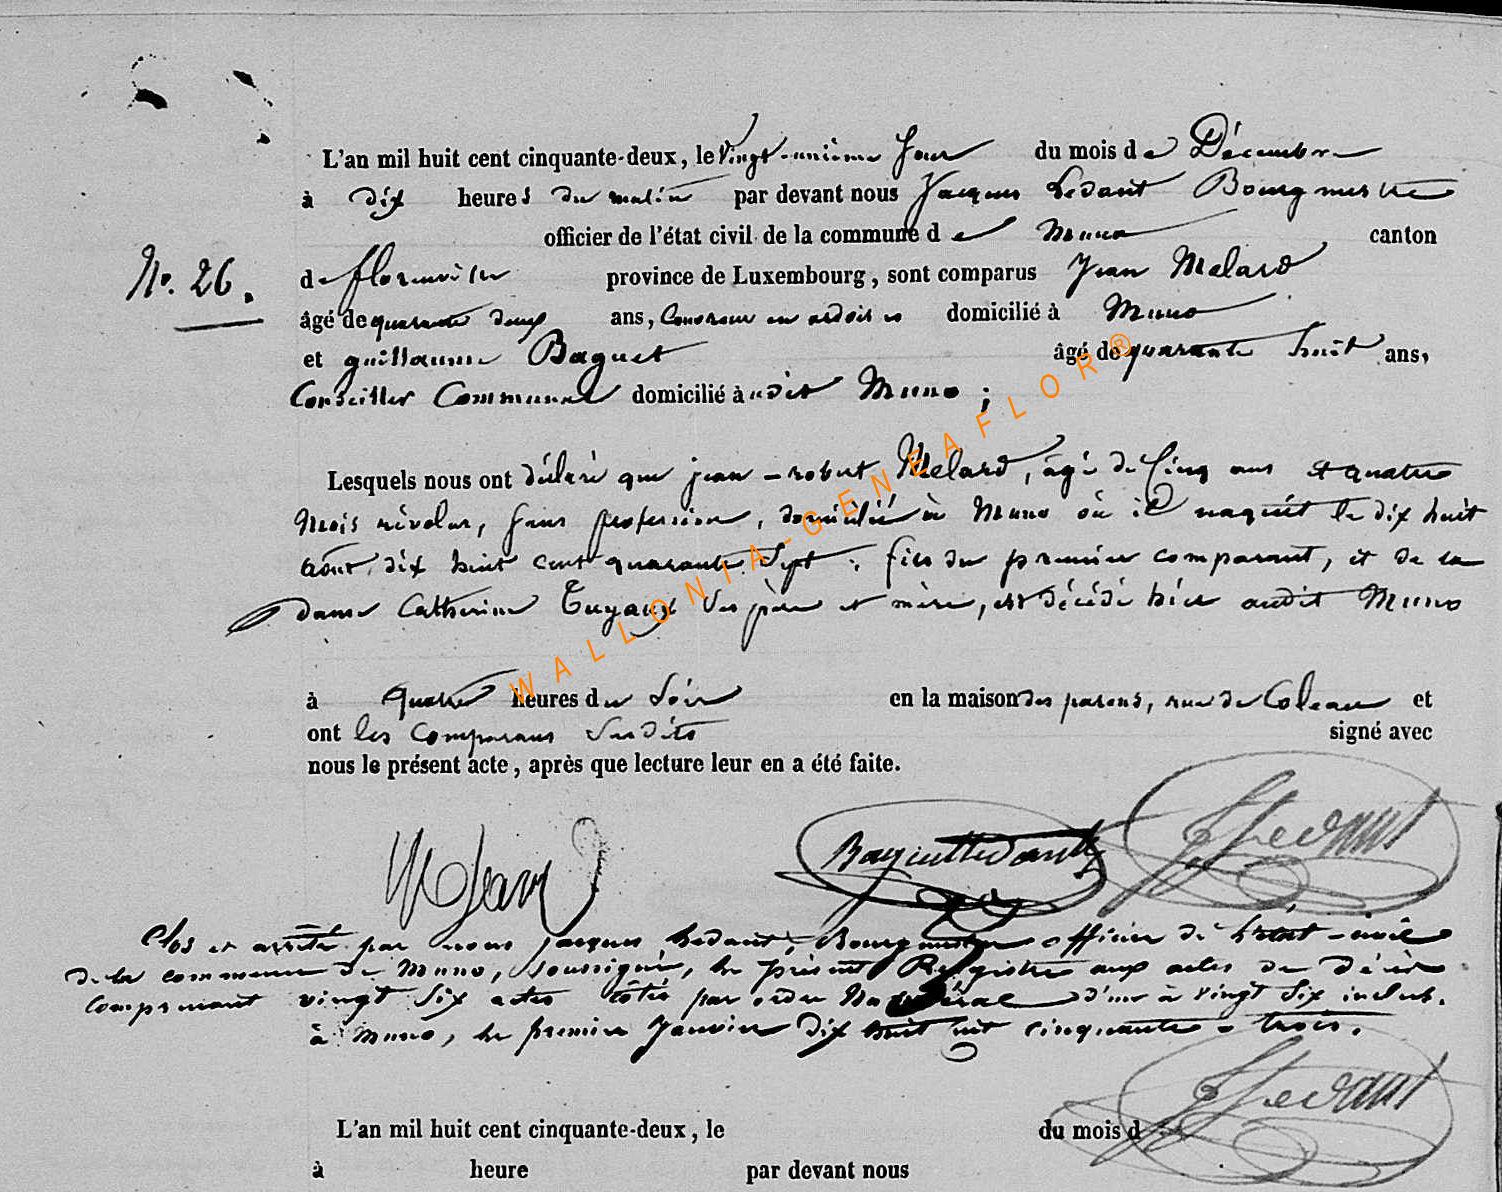 L'an mil huit cent cinquante-deux, le vingt-unième jour du mois de Décembre
à dix heures du matin par devant nous Jacques Ledant Bourgmestre
officier de l'état civil de la commune de Muno canton
No. 26. de florenville province de Luxembourg, sont comparus Jean Melard
âgé de quarante deux ans, Couvreur en ardoises domicilié à Muno
et guillaume Baguet âgé de quarante huit ans,
Conseiller Communal domicilié à udit Muno ;
Lesquels nous ont déclaré que jean-robert Melard, âgé de Cinq ans et quatre
Mois révolus, sans profession, domicilié à Muno où il naquît le dix huit
Août dix huit cent quarante sept ; fils du premier comparant, et de la
dame Catherine Tuyaux ses père et mère, est décédé hier audit Muno
à quatre heures du soir en la maison des parens, rue de Coleau et
ont les Comparans Susdits signé avec
nous le présent acte, après que lecture leur en a été faite.
WALLONIA-GENEAFLOR®
M Jean Baguet Ledant JLedant
Clos et arrêté par nous jacques Ledant, Bourgmestre officier de l'état-civil
de la commune de Muno, soussigné, le présent Registre aux actes de décès
comprenant vingt Six actes côtés par ordre Numéral d'un à vingt Six inclus.
à Muno, le premier Janvier dix huit cent cinquante-trois.
JLedant
L'an mil huit cent cinquante-deux, le du mois d
à heure par devant nous